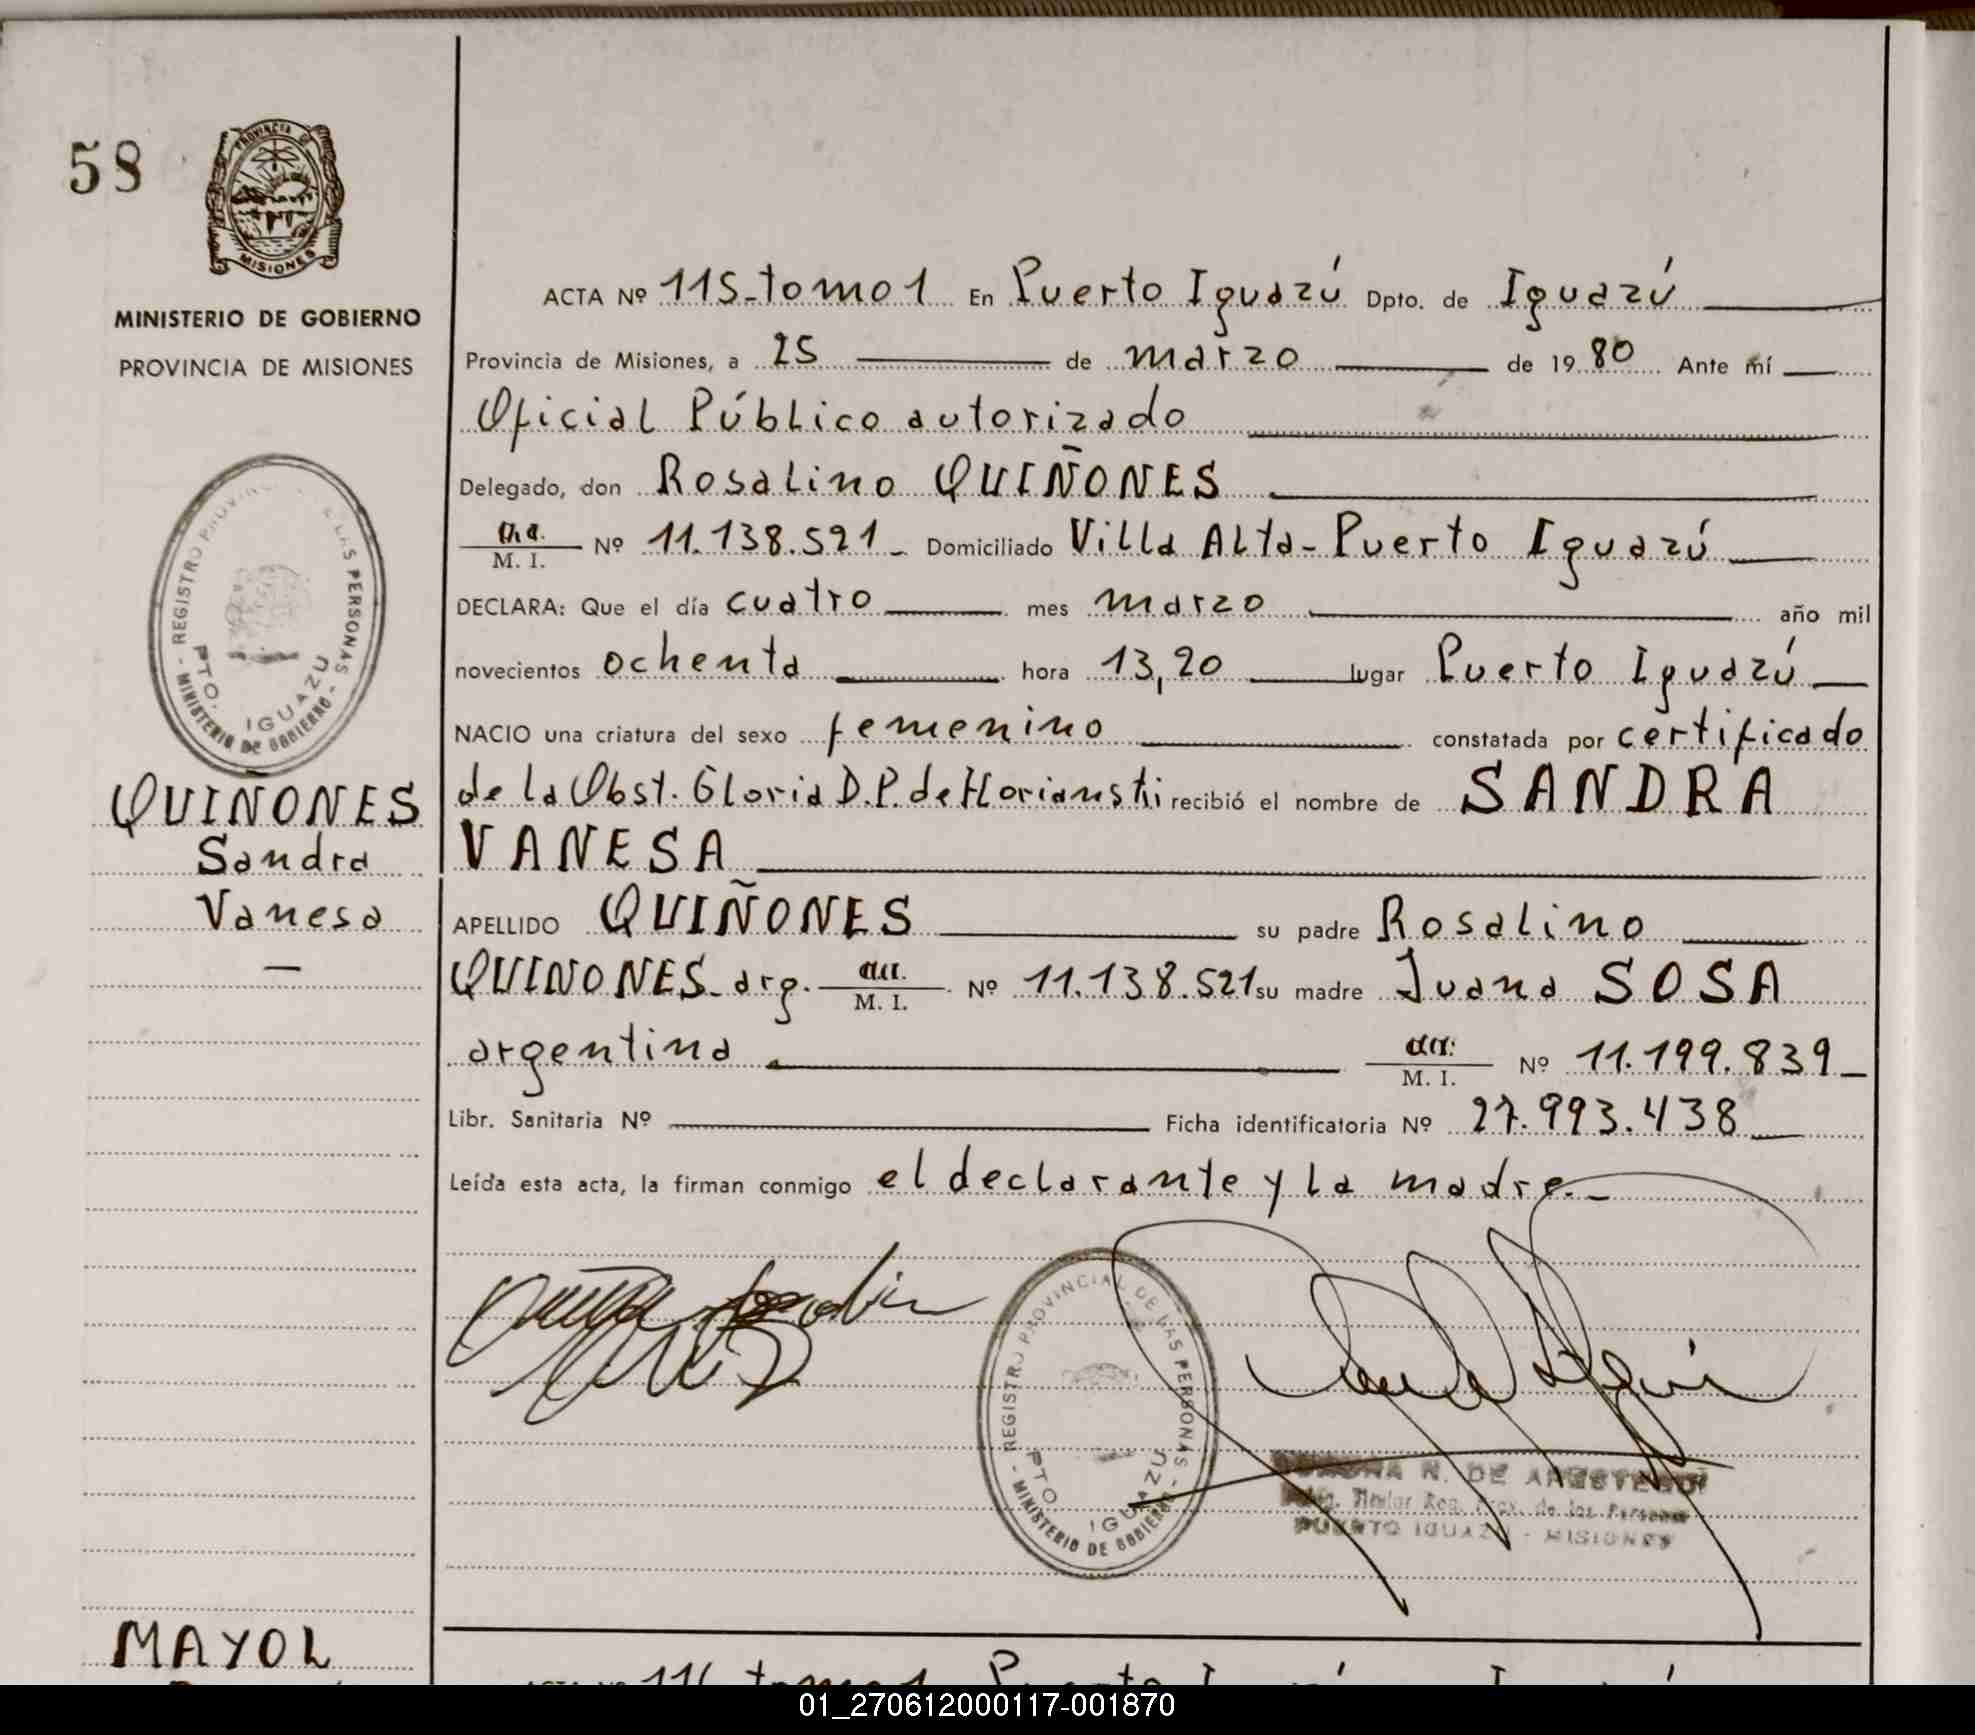 58
PROVINCIA DE
MISIONES
MINISTERIO DE GOBIERNO
PROVINCIA DE MISIONES
REGISTRO PROVIN LAS PERSONAS
PTO. IGUAZU
- MINISTERIO DE GOBIERNO -
QUIÑONES
Sandra
Vanesa
—
ACTA Nº 115-tomo 1 En Puerto Iguazú Dpto. de Iguazú
Provincia de Misiones, a 25 de marzo de 1980 Ante mí
Oficial Público autorizado
Delegado, don Rosalino QUIÑONES
M. I. Nº 11.138.521_ Domiciliado Villa Alta-Puerto Iguazú
DECLARA: Que el día cuatro mes marzo año mil
novecientos ochenta hora 13,20 lugar Puerto Iguazú
NACIO una criatura del sexo femenino constatada por certificado
de la Obst. Gloria D.P. de recibió el nombre de SANDRA
VANESA
APELLIDO QUIÑONES su padre Rosalino
QUINONES_arg. M. I. Nº 11.138.521 su madre Juana SOSA
argentina M. I. Nº 11.199.839_
Libr. Sanitaria Nº Ficha identificatoria Nº 27.993.438
Leída esta acta, la firman conmigo el declarante y la madre._
REGISTRO PROVINCIAL DE LAS PERSONAS
PTO. IGUAZU
- MINISTERIO DE GOBIERNO -
N. DE
Titular Reg. Prov. de las Personas
PUERTO IGUAZU - MISIONES
MAYOL
01_270612000117-001870